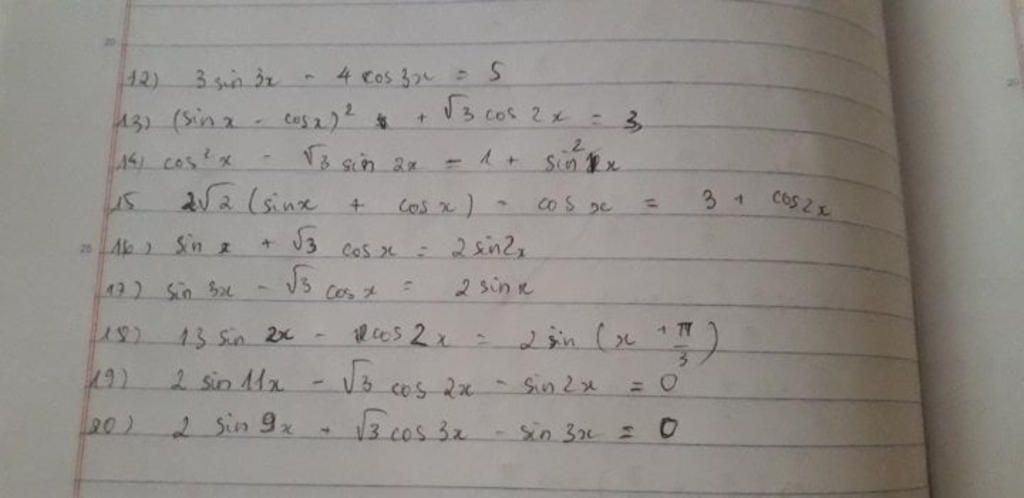 12) 3 sin 3x - 4 cos 3x = 5
13) (sin x - cos x)² + √3 cos 2x = 3
14) cos² x - √3 sin 2x = 1 + sin² x
15 2√2 (sin x + cos x) - cos x = 3 + cos 2x
16) sin x + √3 cos x = 2 sin 2x
17) sin 3x - √3 cos x = 2 sin x
18) 13 sin 2x - cos 2x = 2 sin (x + π/3)
19) 2 sin 11x - √3 cos 2x - sin 2x = 0
20) 2 sin 9x + √3 cos 3x - sin 3x = 0